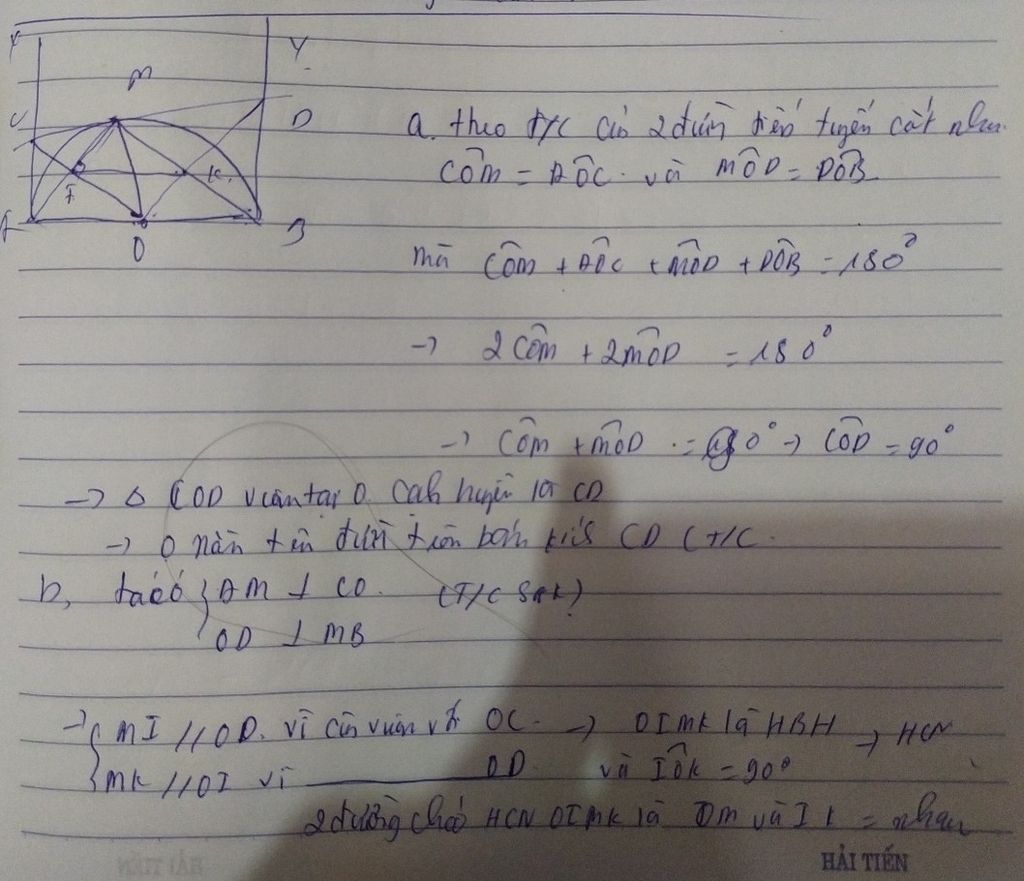 Y
M
D
I
K
O
B
a. theo T/C của 2 đường tiếp tuyến cắt nhau
CÔM = AÔC. và MÔD = DÔB
mà CÔM + AÔC + MÔD + DÔB = 180°
→ 2 CÔM + 2 MÔD = 180°
→ CÔM + MÔD = 90° → CÔD = 90°
→ Δ COD vuông tại O. cạnh huyền là CD
→ O nằm trên đường tròn bán kính CD (T/C.
b, ta có AM ⊥ CO. (T/C SGK)
OD ⊥ MB
→ MI // OD. vì cùng vuông với OC. → OIMK là HBH → HCN
MK // OI vì OD. và IÔK = 90°
2 đường chéo HCN OIMK là OM và IK = nhau
HẢI TIẾN